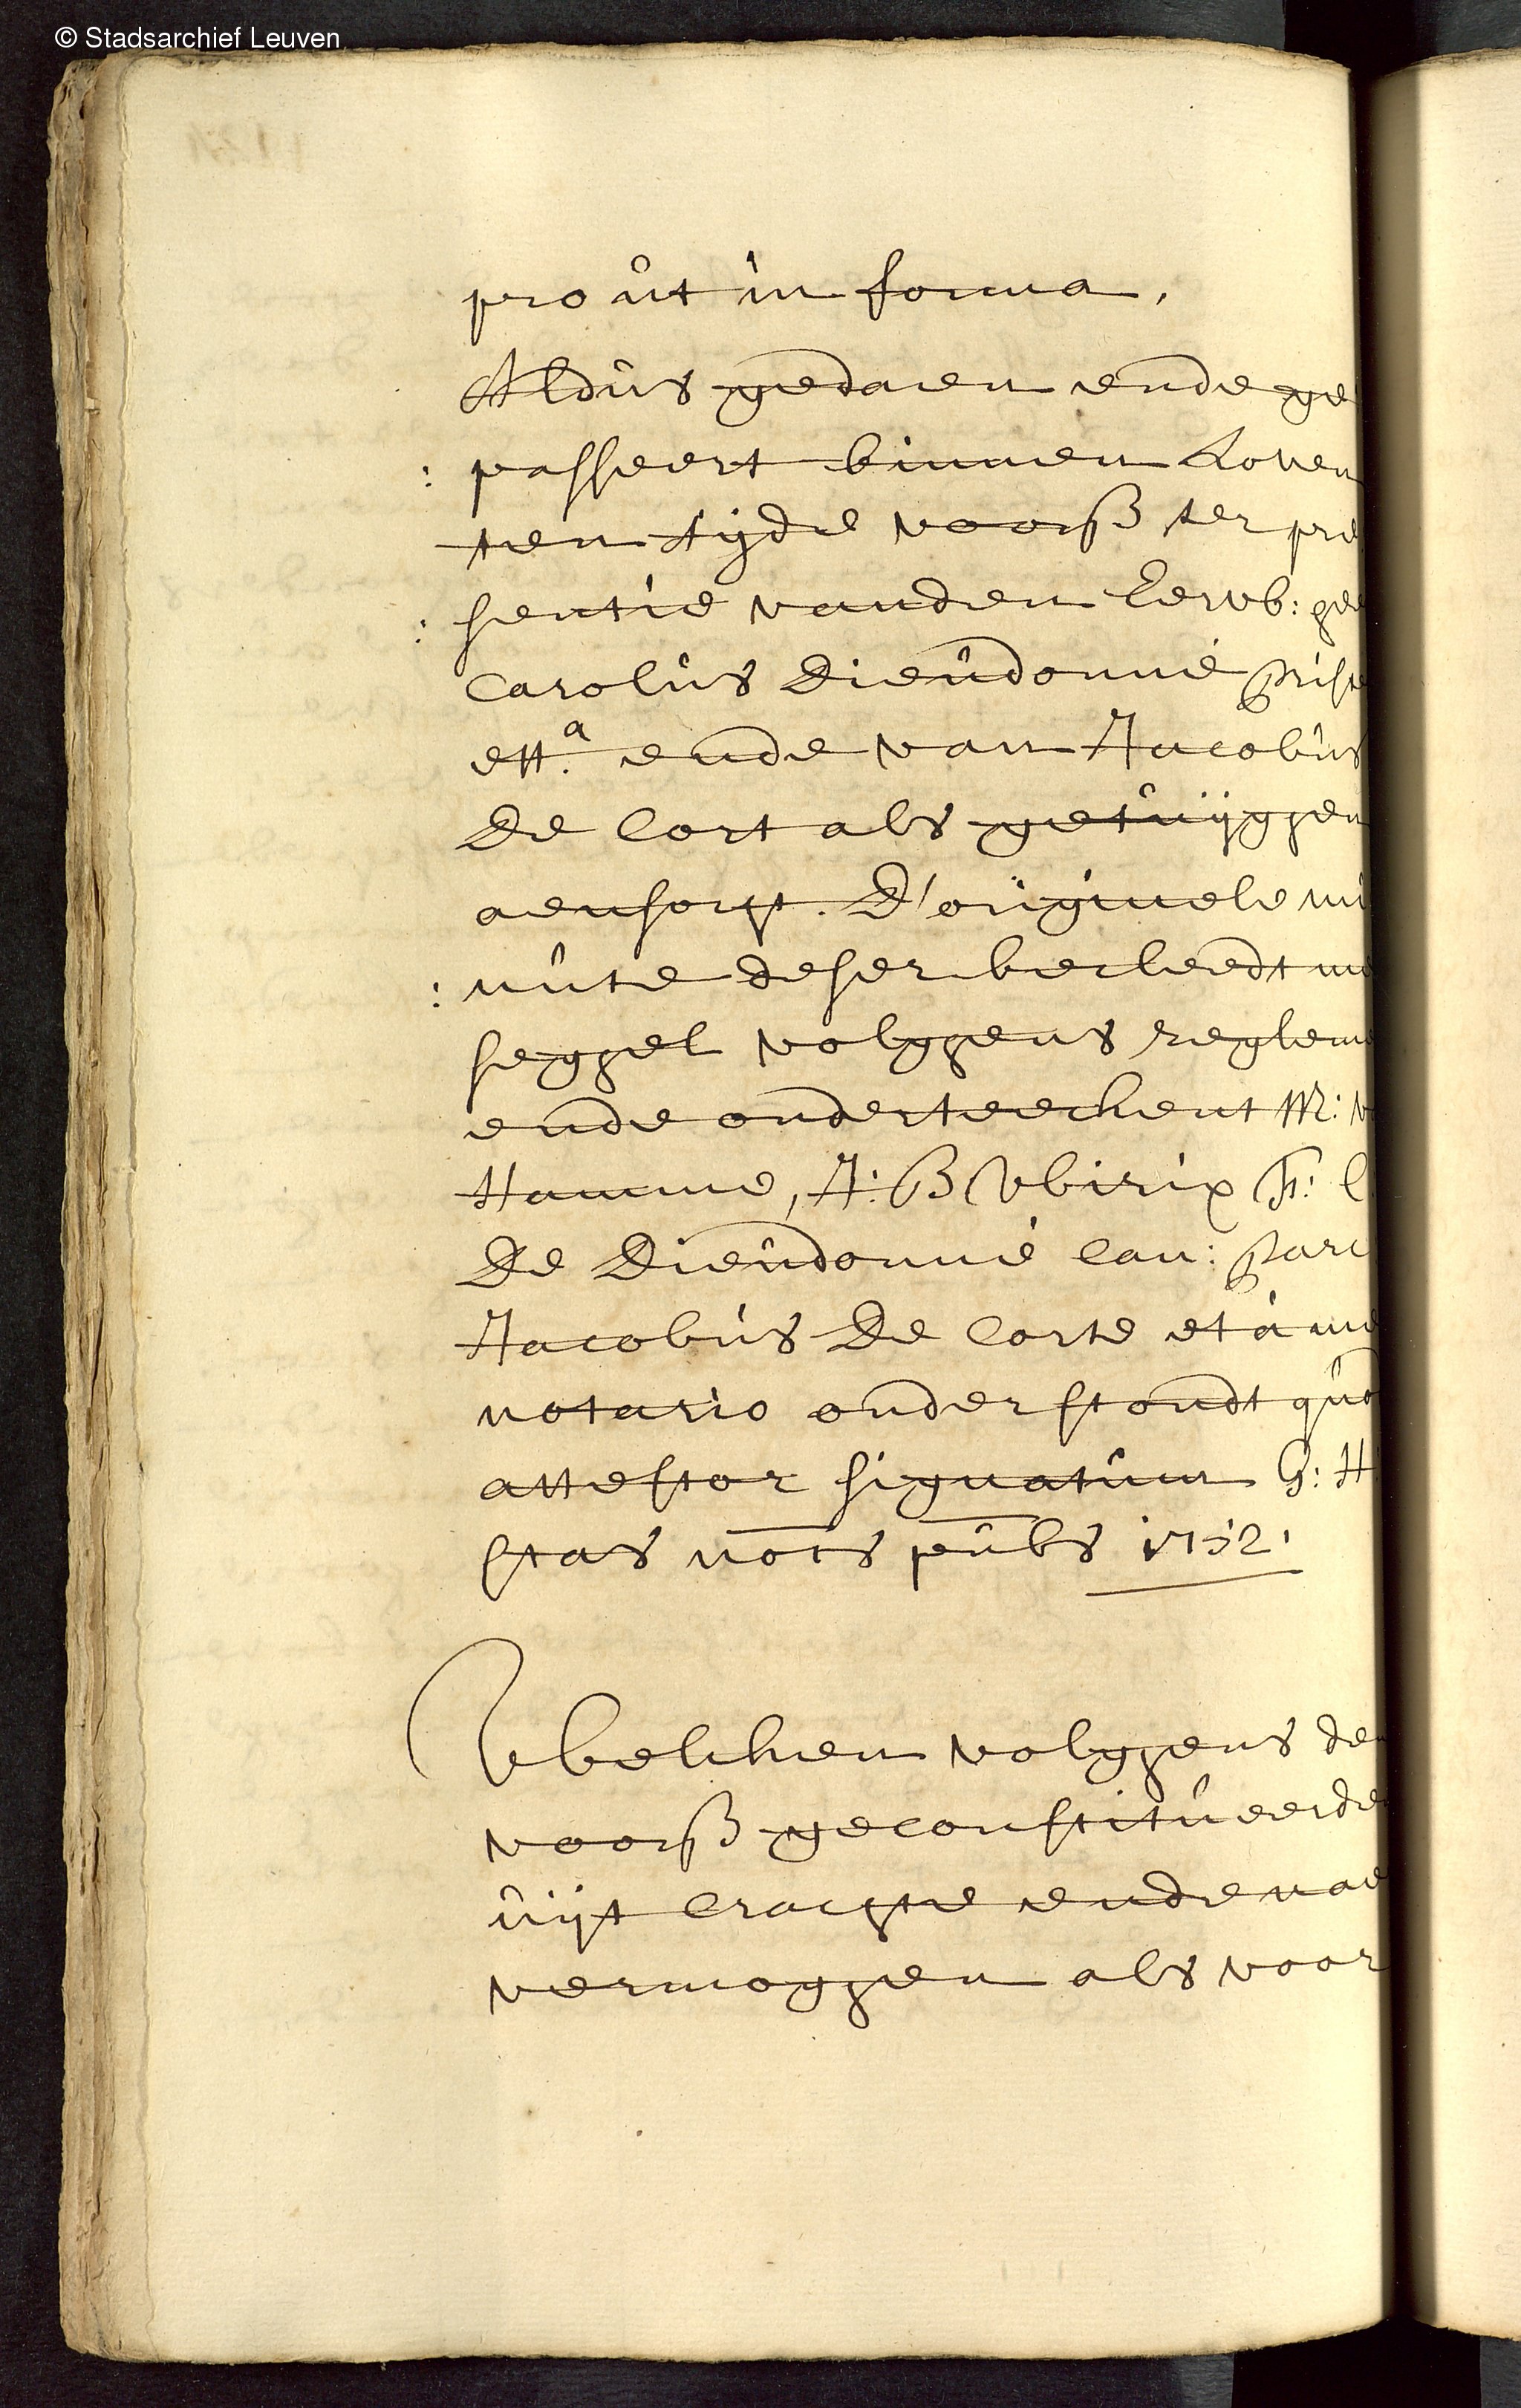 © Stadsarchief Leuven
pro ût in forma,
Aldûs gedaen ende ge
: passeert binnen Loven
ten tijde voorß ter pre
: sentie vanden Eerwb: hee
Carolûs Dieûdonné prist
ett.a ende van Jacobûs
De Cort als getûijghen
aensocht. D'originele mi
: nûte deser becleedt me
seghel volghens regleme
ende onderteeckent M: v
Hamme, J: B Wbirix F: C
De Dieûdonné Can: Parc
Jacobûs De Corte et à me
notario onderstondt quod
attestor signatûm G: H
stas nots pûbs 1752.
Wbelcken volghens de
voorß geconstitûeerde
ûijt crachte ende nae
vermoghen als voor